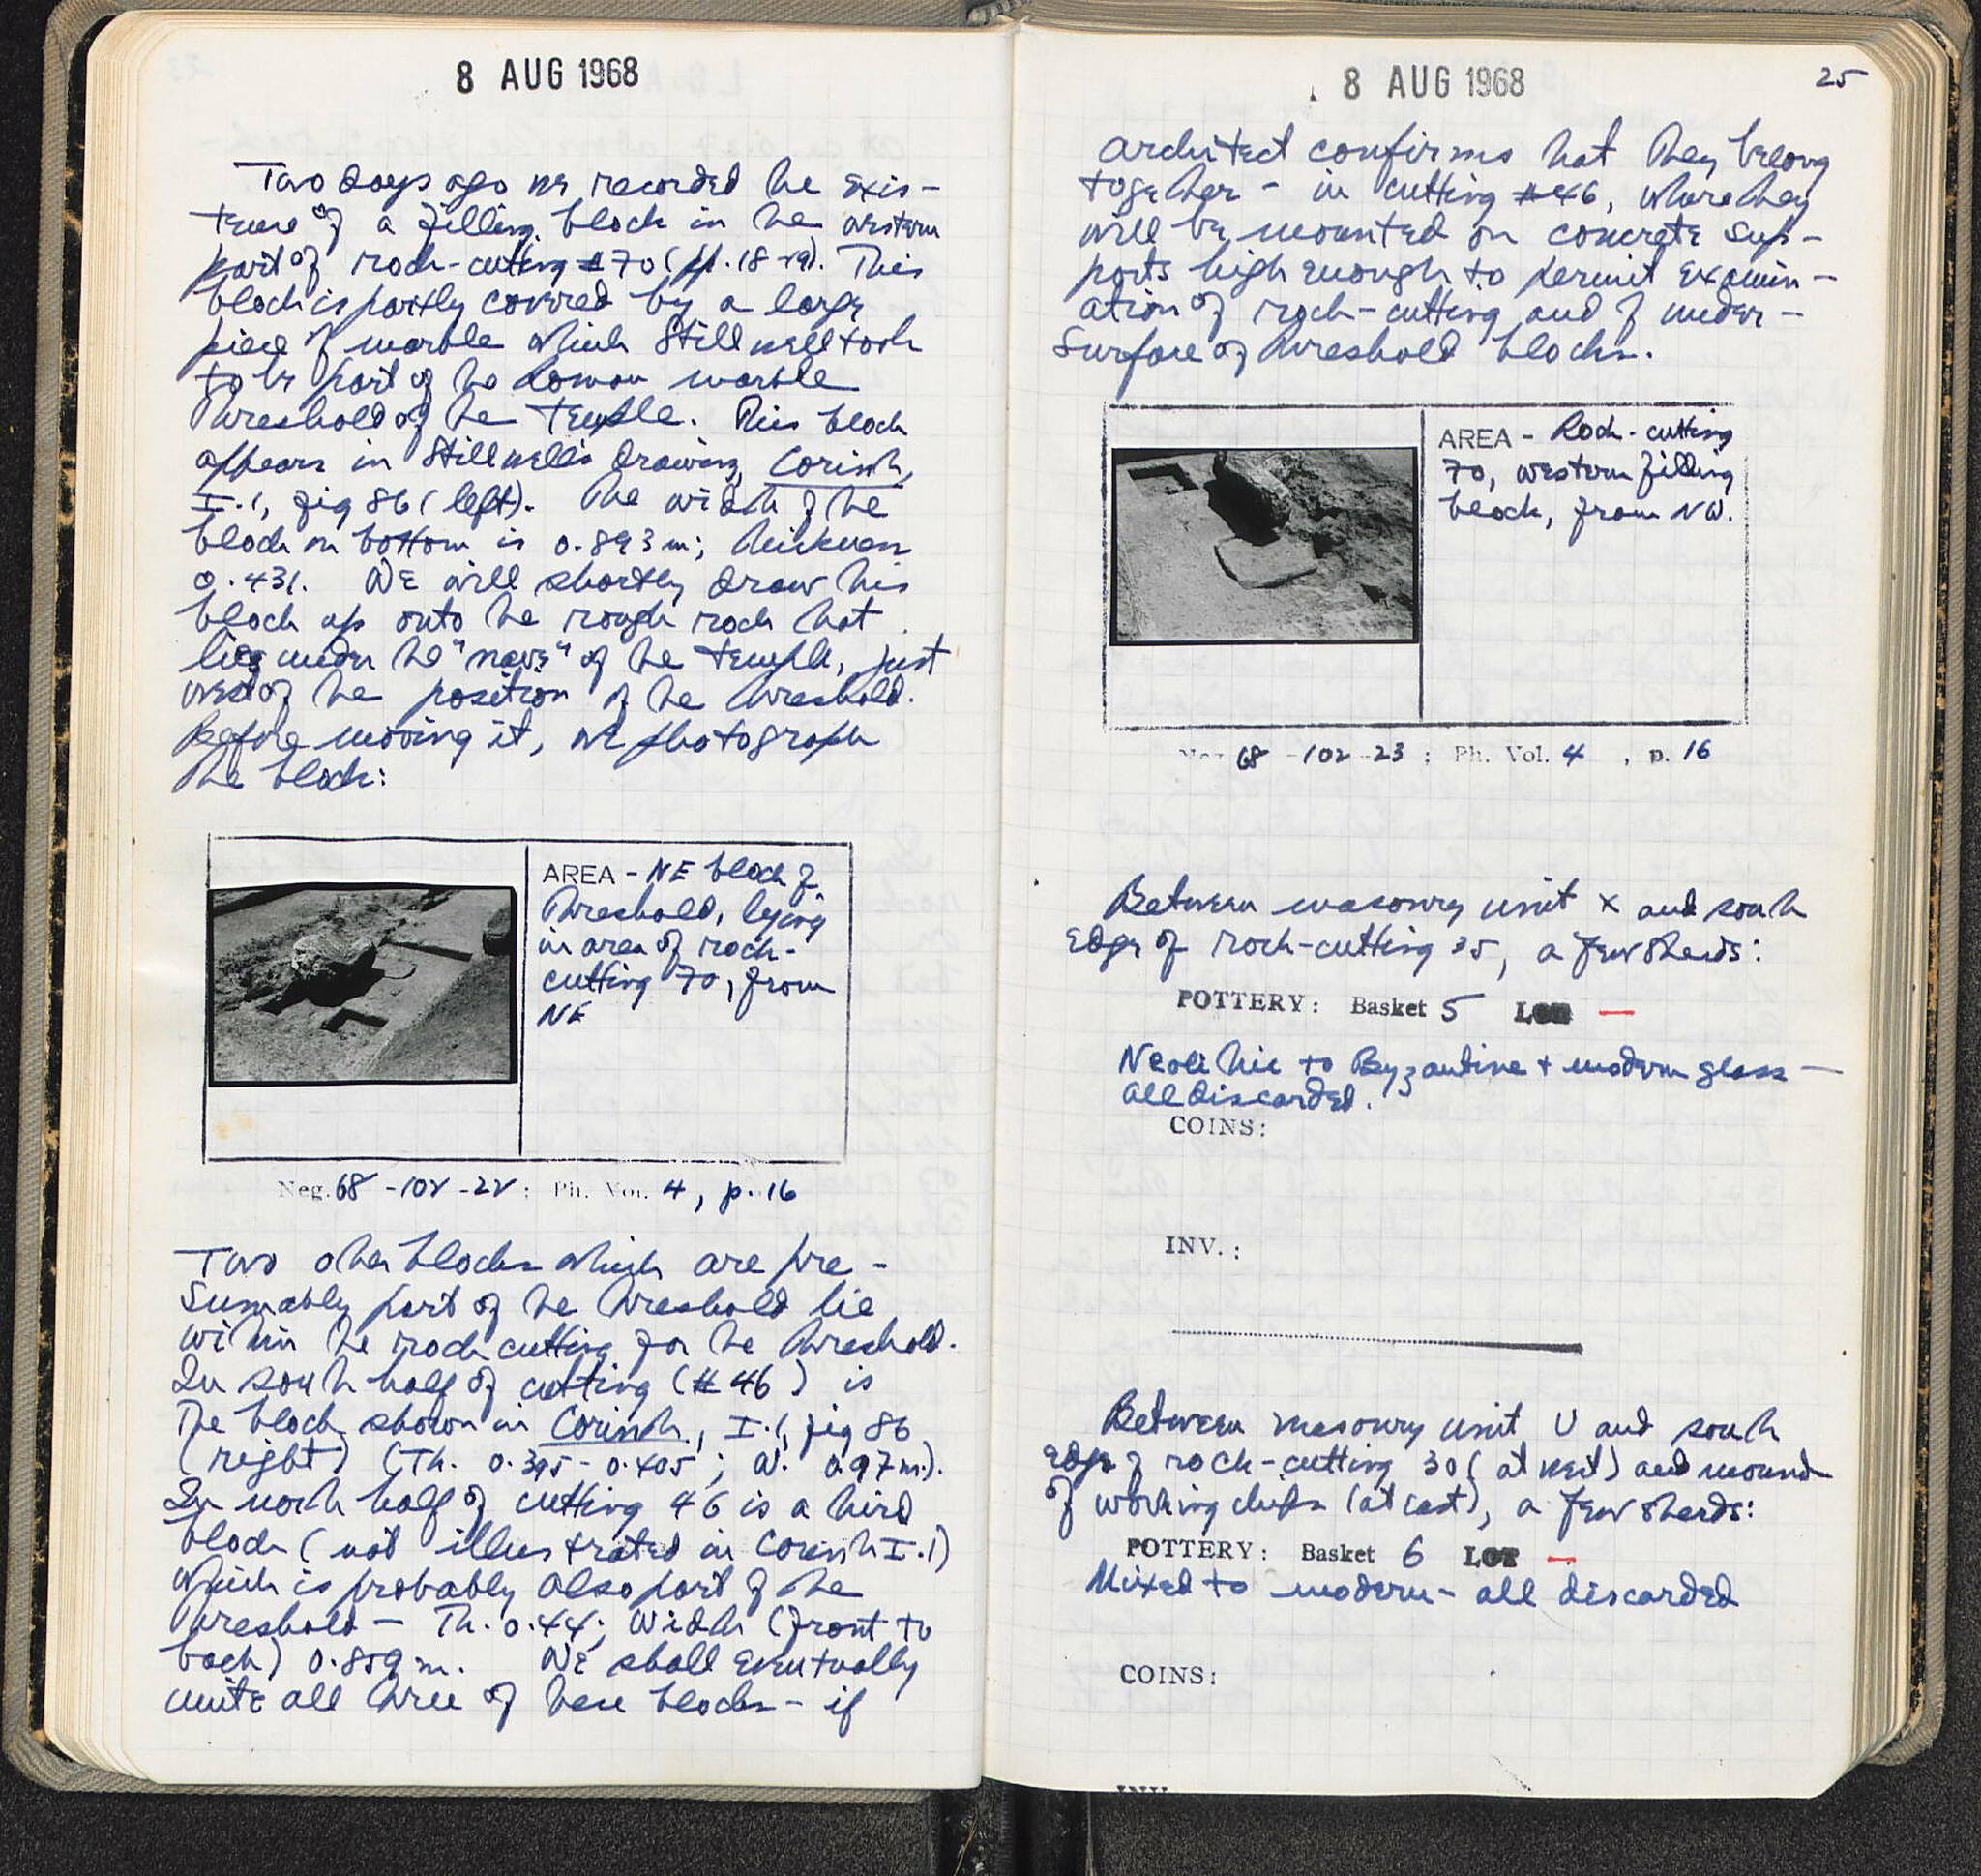 8 AUG 1968
Two days ago we recorded the exis-
tence of a filling block in the western
part of rock-cutting #70 (pp. 18-19). This
block is partly covered by a large
piece of marble which Stillwell took
to be part of the Roman marble
threshold of the temple. This block
appears in Stillwell's drawing, Corinth,
I.1, fig 86 (left). The width of the
block on bottom is 0.893 m; thickness
0.431. We will shortly draw this
block up onto the rough rock that
lies under the "nave" of the temple, just
west of the position of the threshold.
Before moving it, we photograph
the block:
AREA - NE block of
threshold, lying
in area of rock-
cutting 70, from
NE
Neg. 68 -102 -22 ; Ph. Vol. 4, p. 16
Two other blocks which are pre-
sumably part of the threshold lie
within the rock cutting for the threshold.
In south half of cutting (#46) is
the block shown in Corinth, I.1, fig 86
(right) (Th. 0.395-0.405; W. 0.97 m.).
In north half of cutting 46 is a third
block (not illustrated in Corinth I.1)
which is probably also part of the
threshold — Th. 0.44; width (front to
back) 0.859 m. We shall eventually
unite all three of these blocks - if
8 AUG 1968
25
architect confirms that they belong
together - in cutting #46, where they
will be mounted on concrete sup-
ports high enough to permit examin-
ation of rock-cutting and of under-
surface of threshold blocks.
AREA - Rock-cutting
70, western filling
block, from NW.
Neg 68 -102 -23 ; Ph. Vol. 4 , p. 16
Between masonry unit X and south
edge of rock-cutting 35, a few sherds:
POTTERY: Basket 5 LOT —
Neolithic to Byzantine + modern glass —
all discarded.
COINS:
INV.:
Between masonry unit U and south
edge of rock-cutting 30 (at west) and mound
of working chips (at east), a few sherds:
POTTERY: Basket 6 LOT —
Mixed to modern - all discarded
COINS:
INV